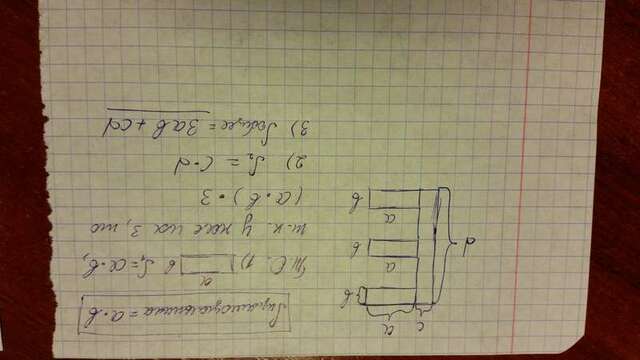 Sпрямоугольника = a·b
т.е. 1) a b S₁ = a·b,
т.к. у нас их 3, то
(a·b)·3
2) S₂ = c·d
3) Sобщее = 3ab + cd
c a
b
a
b
d
a
b